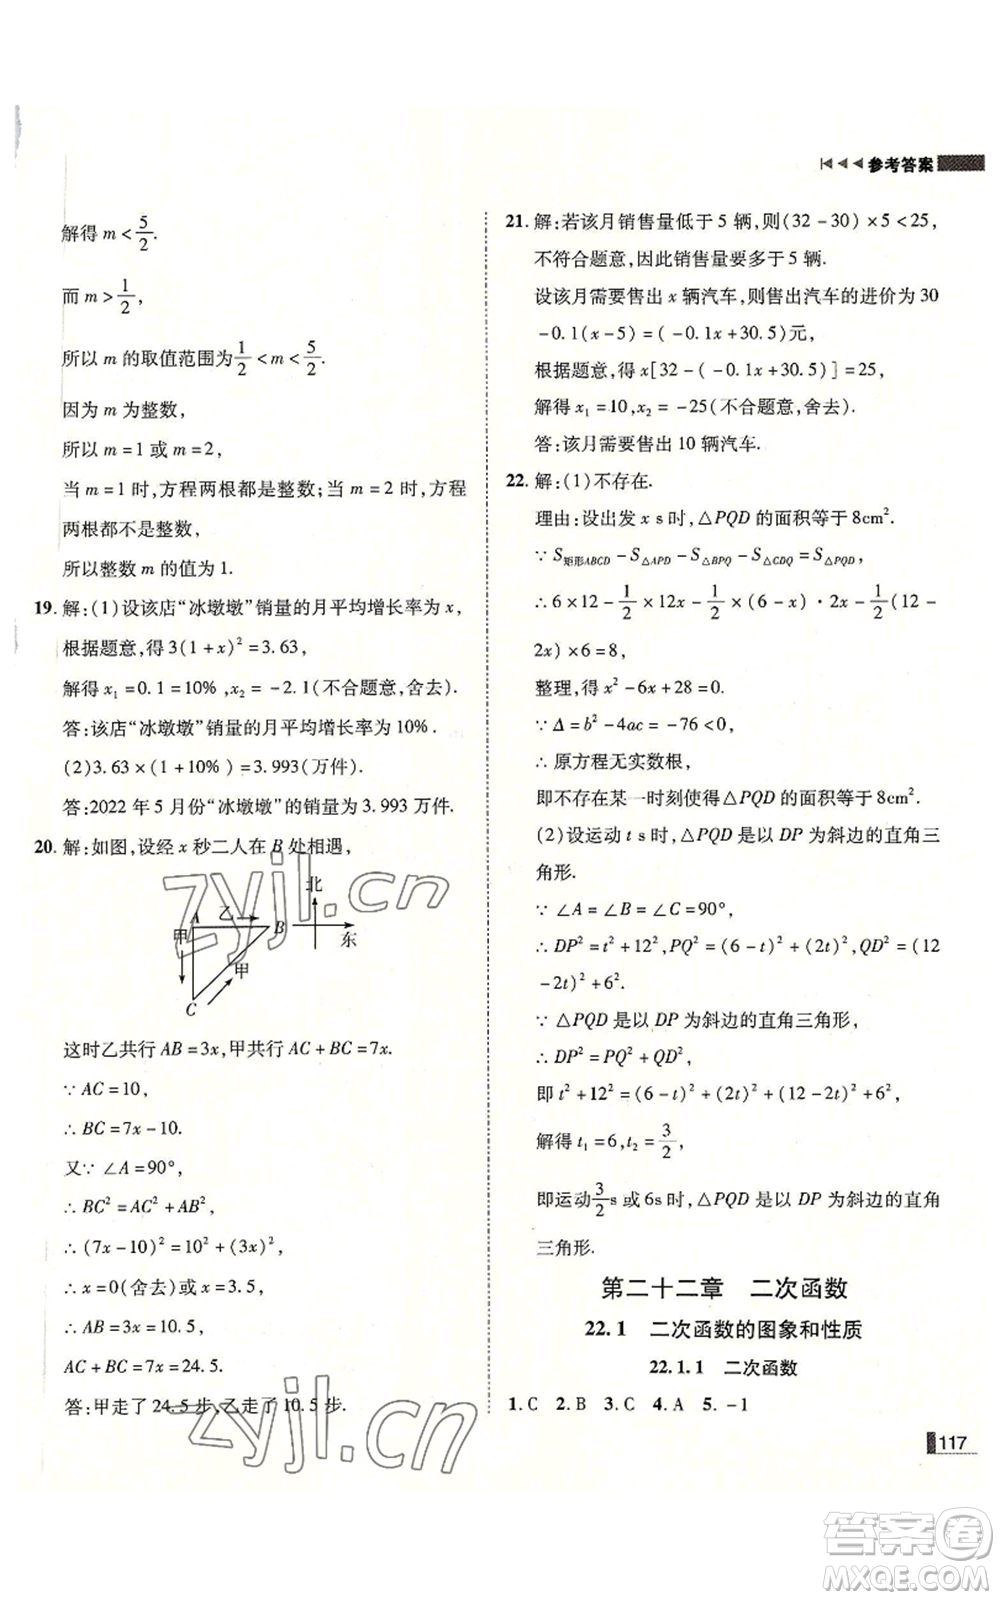 参考答案
解得 m < 5/2.
而 m > 1/2,
所以 m 的取值范围为 1/2 < m < 5/2.
因为 m 为整数,
所以 m = 1 或 m = 2,
当 m = 1 时,方程两根都是整数;当 m = 2 时,方程
两根都不是整数,
所以整数 m 的值为 1.
19. 解:(1)设该店“冰墩墩”销量的月平均增长率为 x,
根据题意,得 3(1 + x)² = 3.63,
解得 x₁ = 0.1 = 10%, x₂ = -2.1(不合题意,舍去).
答:该店“冰墩墩”销量的月平均增长率为 10%.
(2)3.63 × (1 + 10%) = 3.993(万件).
答:2022 年 5 月份“冰墩墩”的销量为 3.993 万件.
20. 解:如图,设经 x 秒二人在 B 处相遇,
北
A 乙 B
甲 东
甲
C
这时乙共行 AB = 3x,甲共行 AC + BC = 7x.
∵ AC = 10,
∴ BC = 7x - 10.
又∵ ∠A = 90°,
∴ BC² = AC² + AB²,
∴ (7x - 10)² = 10² + (3x)²,
∴ x = 0(舍去)或 x = 3.5,
∴ AB = 3x = 10.5,
AC + BC = 7x = 24.5.
答:甲走了 24.5 步,乙走了 10.5 步.
21. 解:若该月销售量低于 5 辆,则(32 - 30) × 5 < 25,
不符合题意,因此销售量要多于 5 辆.
设该月需要售出 x 辆汽车,则售出汽车的进价为 30
- 0.1(x - 5) = ( - 0.1x + 30.5)元,
根据题意,得 x[32 - ( - 0.1x + 30.5)] = 25,
解得 x₁ = 10, x₂ = -25(不合题意,舍去).
答:该月需要售出 10 辆汽车.
22. 解:(1)不存在.
理由:设出发 x s 时,△PQD 的面积等于 8cm².
∵ S矩形ABCD - S△APD - S△BPQ - S△CDQ = S△PQD,
∴ 6 × 12 - 1/2 × 12x - 1/2 × (6 - x) · 2x - 1/2(12 -
2x) × 6 = 8,
整理,得 x² - 6x + 28 = 0.
∵ Δ = b² - 4ac = -76 < 0,
∴ 原方程无实数根,
即不存在某一时刻使得△PQD 的面积等于 8cm².
(2)设运动 t s 时,△PQD 是以 DP 为斜边的直角三
角形.
∵ ∠A = ∠B = ∠C = 90°,
∴ DP² = t² + 12², PQ² = (6 - t)² + (2t)², QD² = (12
- 2t)² + 6².
∵ △PQD 是以 DP 为斜边的直角三角形,
∴ DP² = PQ² + QD²,
即 t² + 12² = (6 - t)² + (2t)² + (12 - 2t)² + 6²,
解得 t₁ = 6, t₂ = 3/2,
即运动 3/2 s 或 6s 时,△PQD 是以 DP 为斜边的直角
三角形.
第二十二章 二次函数
22.1 二次函数的图象和性质
22.1.1 二次函数
1. C 2. B 3. C 4. A 5. -1
117
zyjl.cn
zyjl.cn
答案圈
MXQE.COM